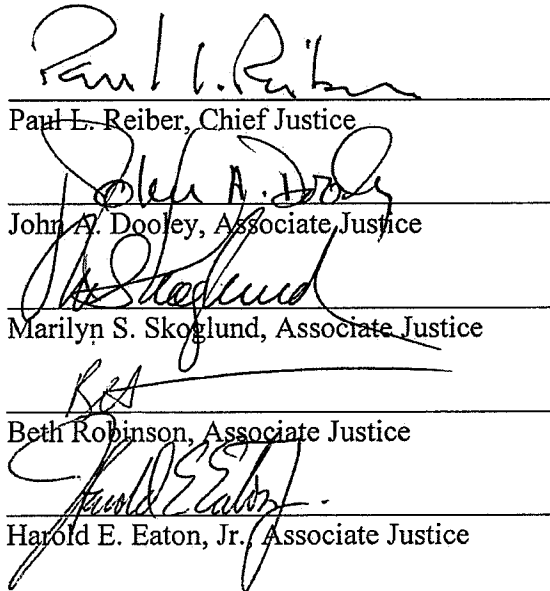 Paul L. Reiber
Paul L. Reiber, Chief Justice
John A. Dooley
John A. Dooley, Associate Justice
Skoglund
Marilyn S. Skoglund, Associate Justice
Beth Robinson, Associate Justice
Harold E Eaton Jr.
Harold E. Eaton, Jr., Associate Justice